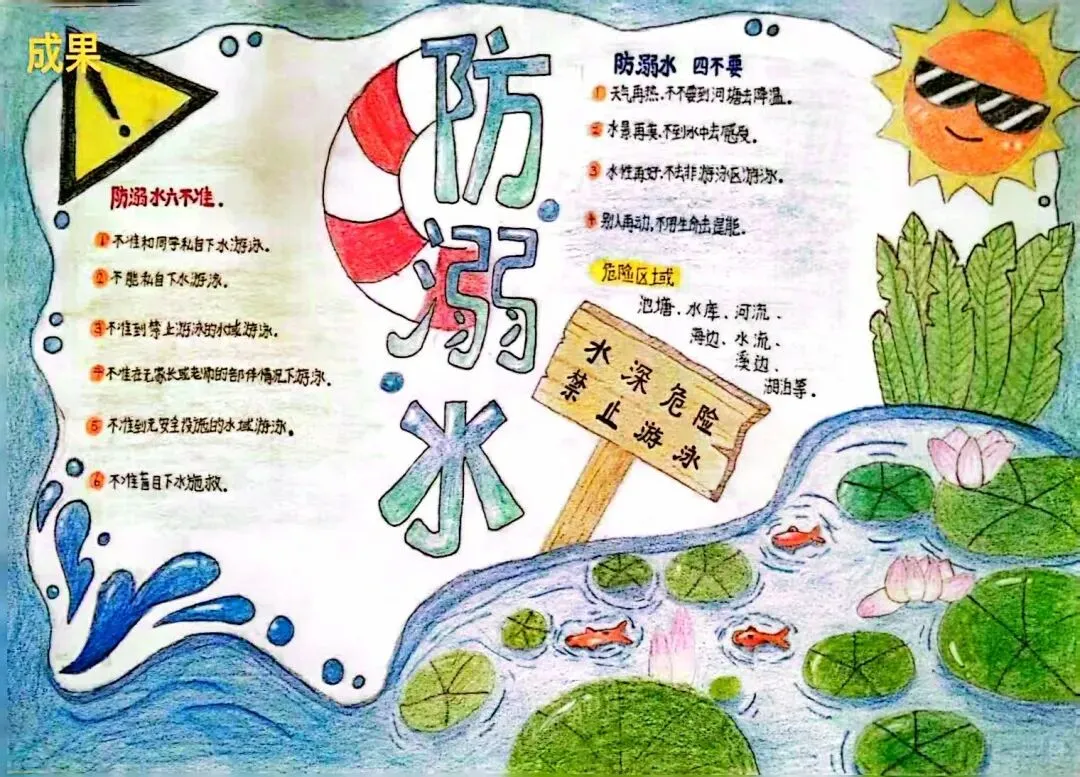 成果
防溺水
防溺水六不准.
1 不准和同学私自下水游泳。
2 不能私自下水游泳。
3 不准到禁止游泳的水域游泳。
4 不准在无家长或老师的陪伴情况下游泳。
5 不准到无安全设施的水域游泳。
6 不准盲目下水施救。
防溺水 四不要
1 天气再热,不要到河塘去降温。
2 水景再美,不到水中去感受。
3 水性再好,不去非游泳区游泳。
4 别人再动,不用生命去逞能。
危险区域
池塘、水库、河流、
海边、水流、
溪边、
湖泊等。
水深危险
禁止游泳